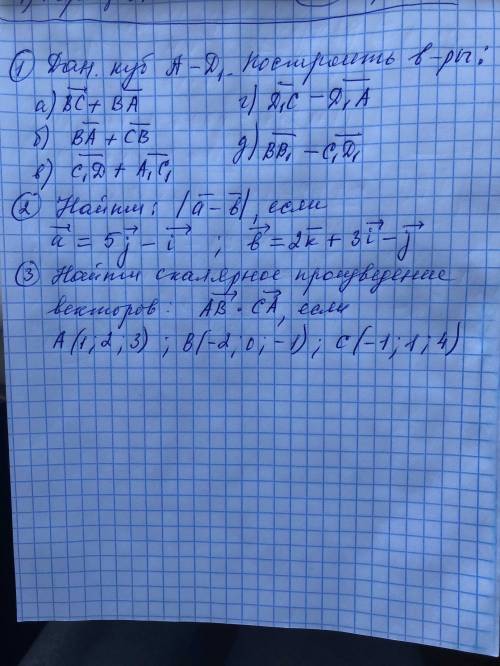 ① Дан. куб A-D₁. Построить в-ры:
а) B͞C + B͞A г) D͞₁C − D͞₁A
б) B͞A + C͞B д) B͞B₁ − C͞₁D₁
в) C͞₁D + A͞₁C₁
② Найти: |a̅ − b̅|, если
a⃗ = 5j⃗ − i⃗ ; b⃗ = 2k̅ + 3i⃗ − j⃗
③ Найти скалярное произведение
векторов: AB⃗ · CA⃗, если
A(1; 2; 3) ; B(-2; 0; -1) ; C(-1; 1; 4)